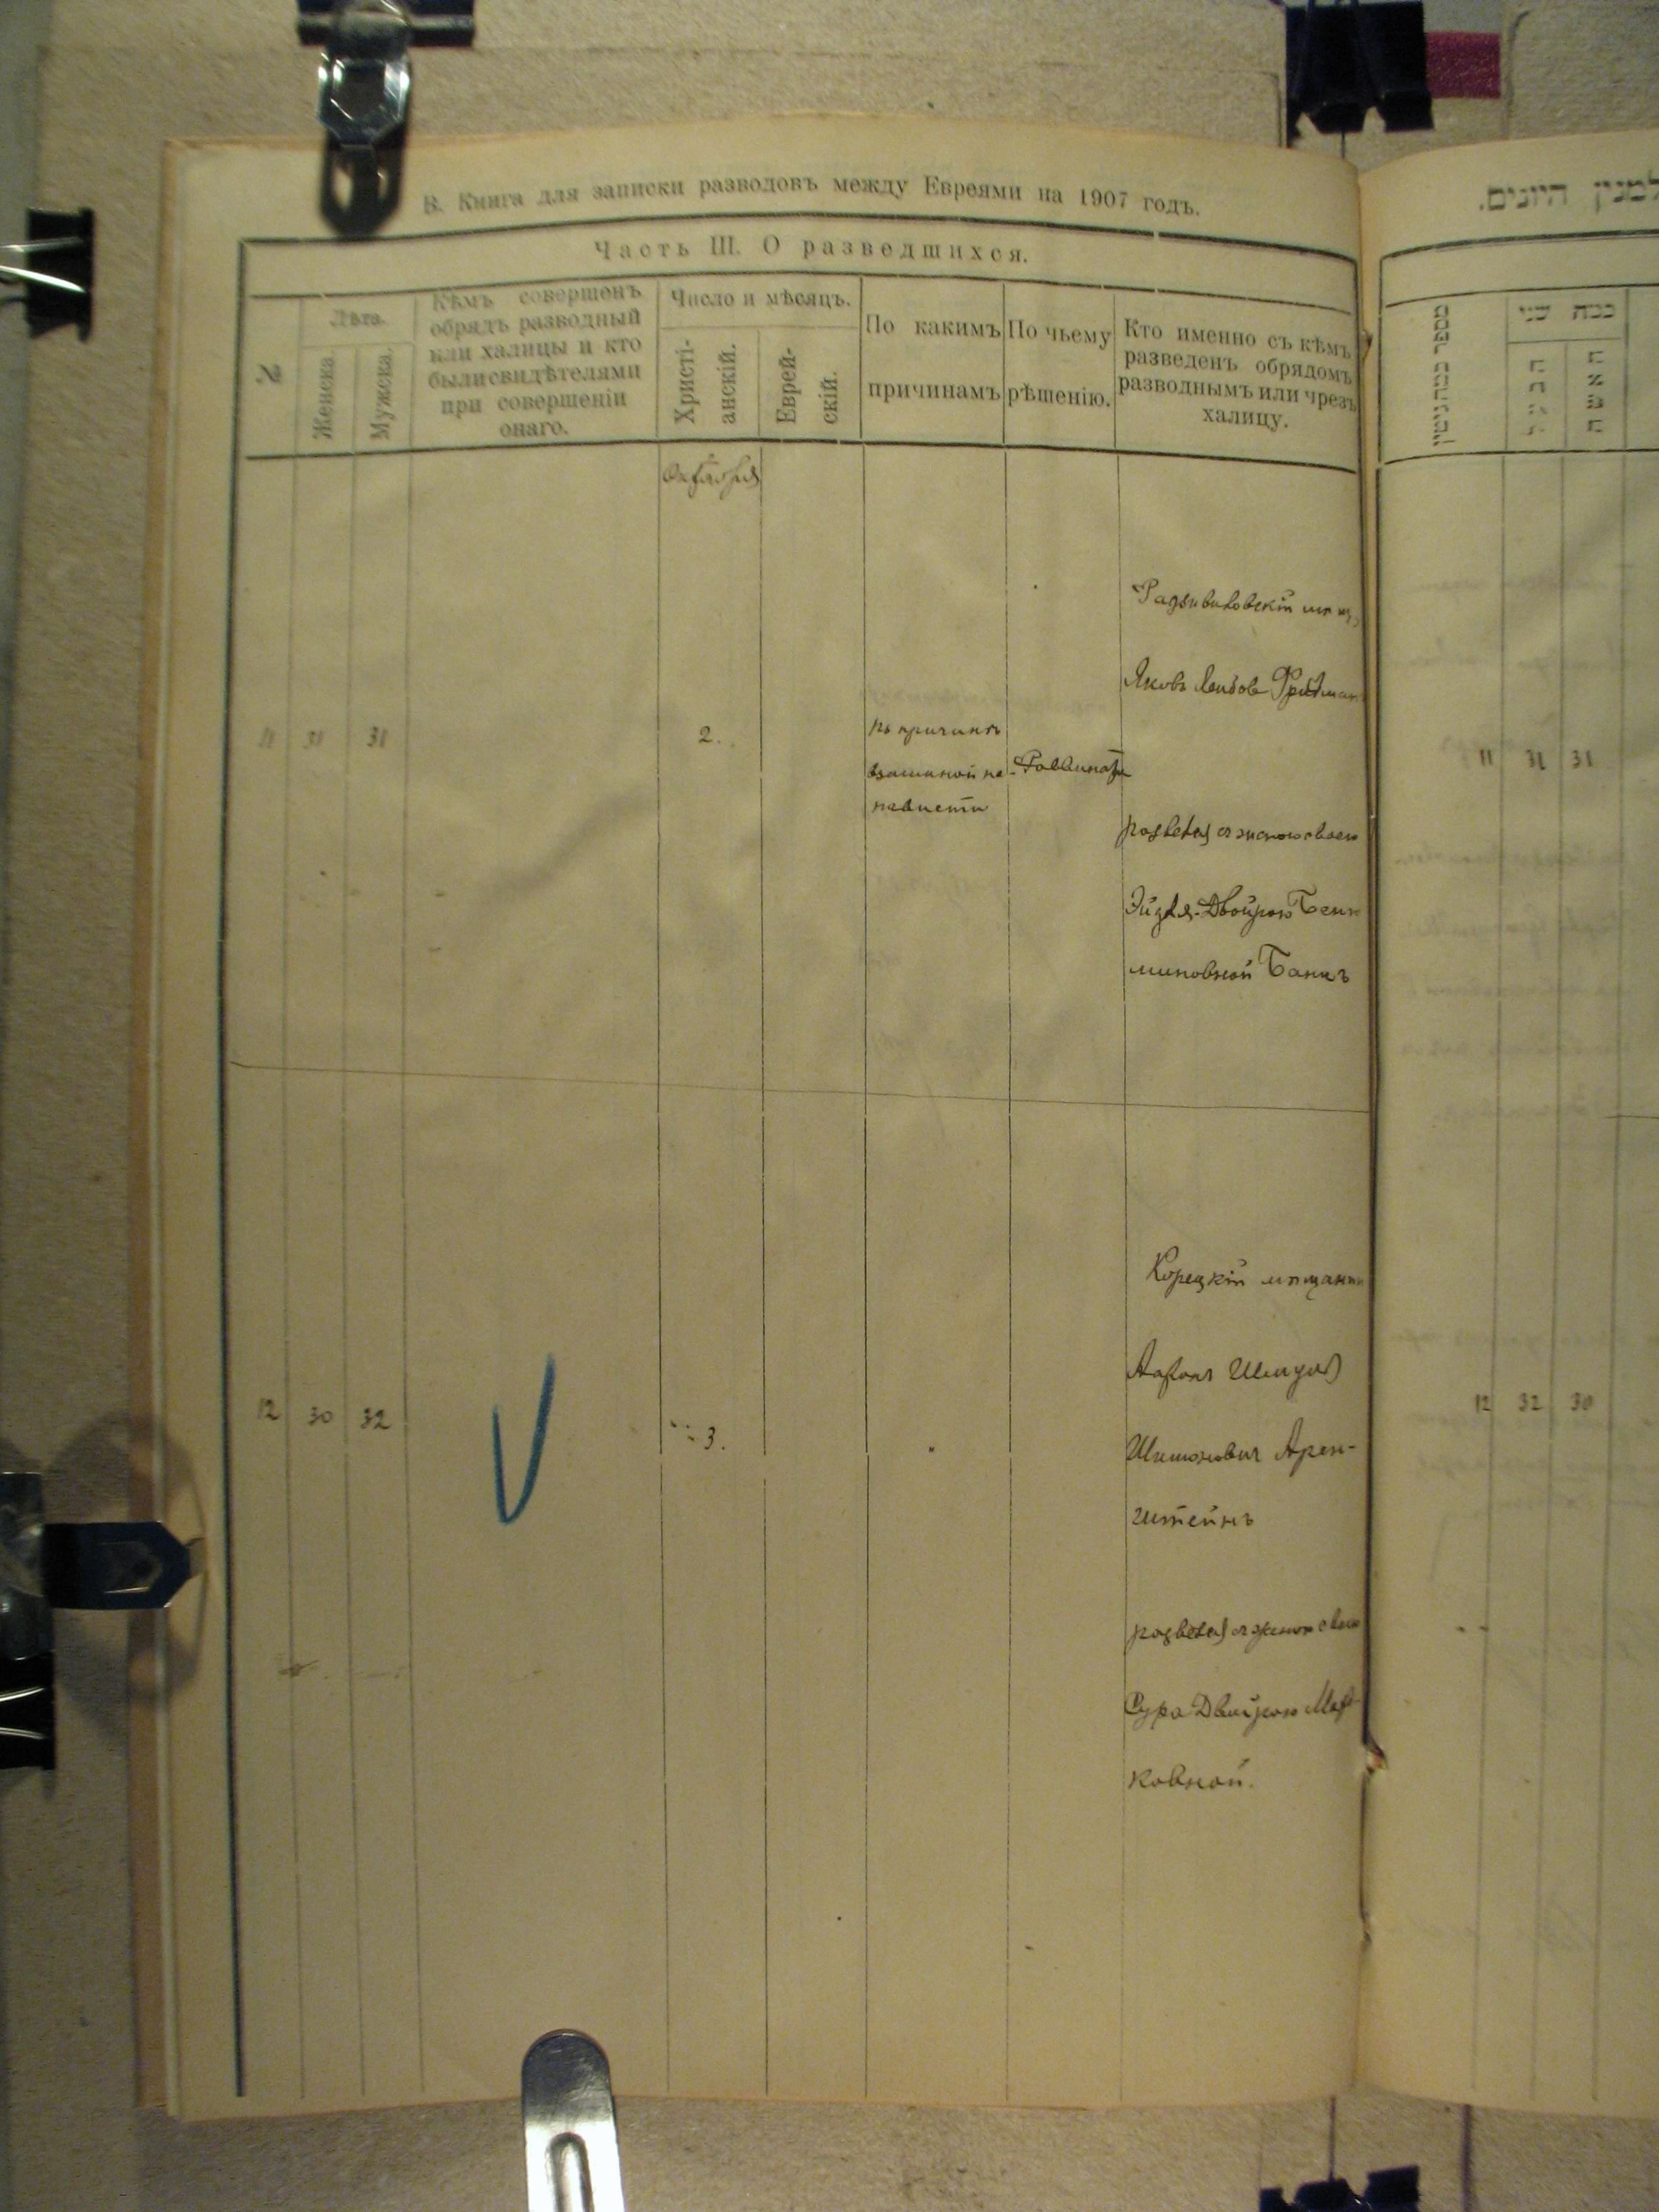 В. Книга для записки разводовъ между Евреями на 1907 годъ.
Часть III. О разведшихся.
№
Лѣта.
Женска.
Мужска.
Кѣмъ совершенъ
обрядъ разводный
или халицы и кто
были свидѣтелями
при совершеніи
онаго.
Число и мѣсяцъ.
Христі-
анскій.
Еврей-
скій.
По какимъ
причинамъ
По чьему
рѣшенію.
Кто именно съ кѣмъ
разведенъ обрядомъ
разводнымъ или чрезъ
халицу.
Октября
11 31 31
2.
по причинѣ
взаимной не-
нависти
Раввината
Радзивиловскій мѣщ.
Яковъ Лейбовъ Фридман
развелся съ женою своею
Эйдля-Двойрою Беня
миновной Банкъ
12 30 32
3.
Корецкій мѣщанин
Ааронъ
Арен-
штейнъ
развелся съ женою своею
Сура Двойрою Мор
ковной.
למנין היונים.
מספר כמה גיטין
כמה שני
האשה
11 31 31
12 32 30